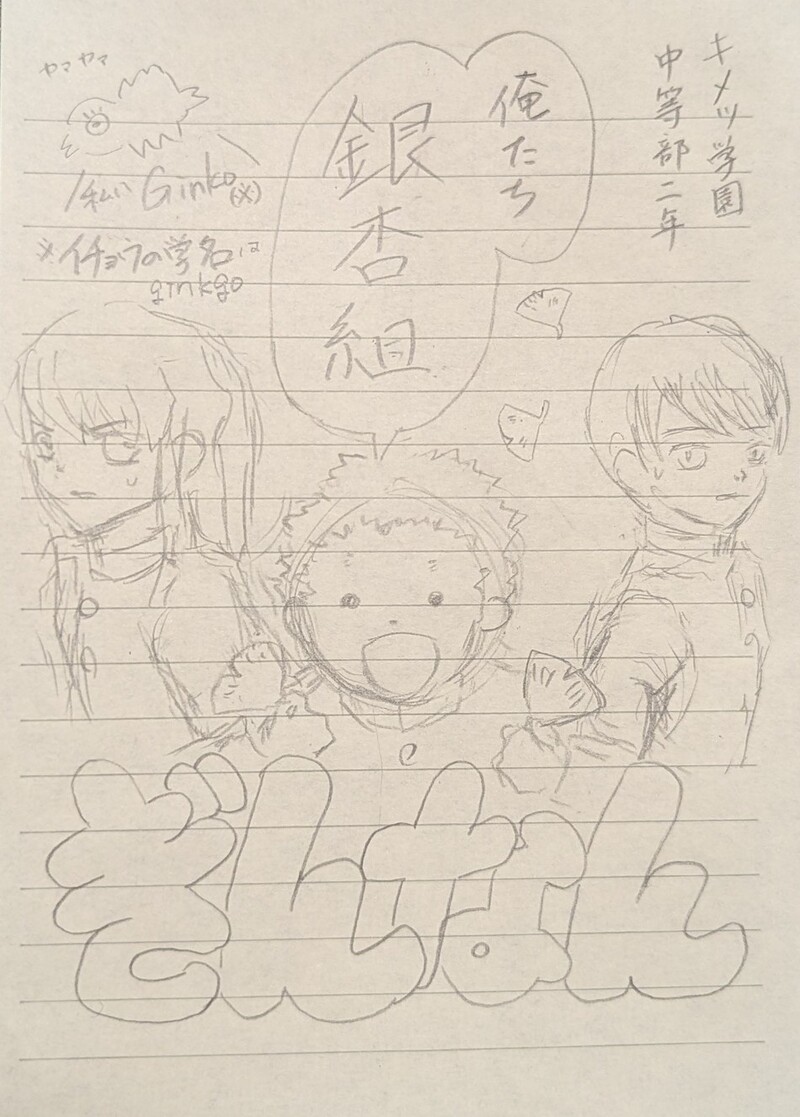 キメツ学園
中等部二年
俺たち
銀杏組
ヤマヤマ
私い Ginko(※)
※イチョウの学名は
ginkgo
ぎんなん